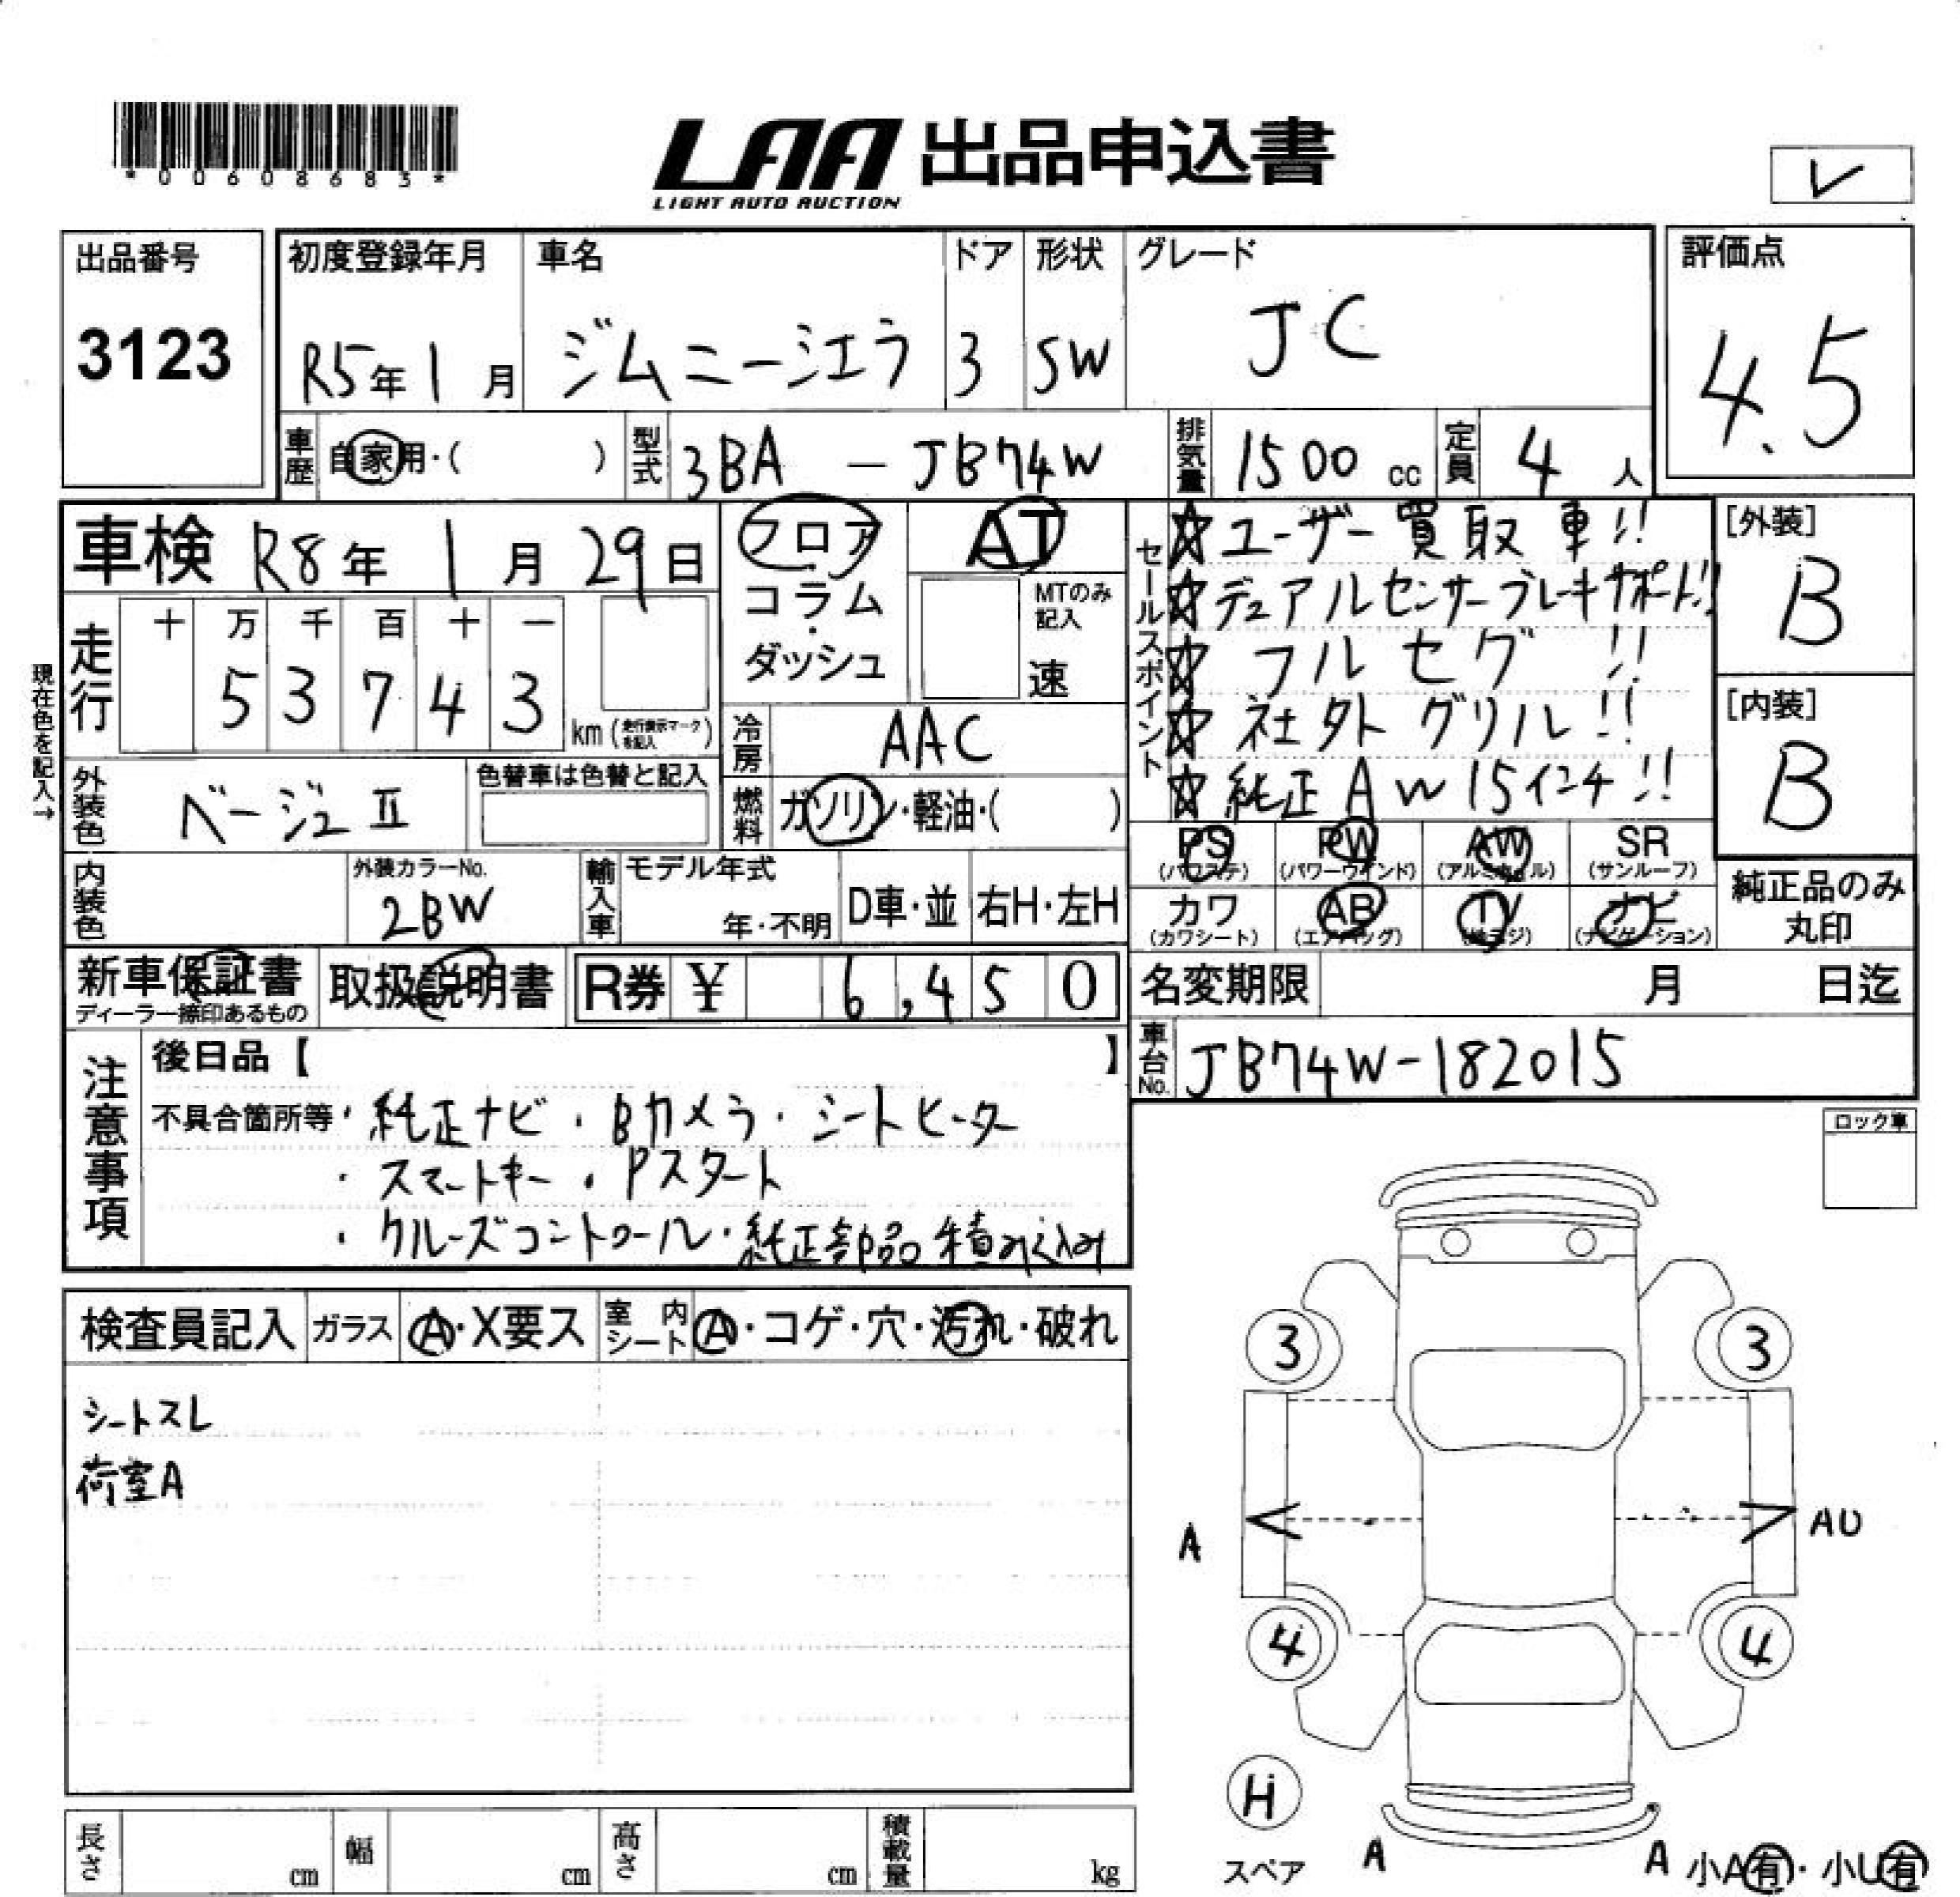 *00608683*
LAA 出品申込書
LIGHT AUTO AUCTION
レ
出品番号 初度登録年月 車名 ドア 形状 グレード 評価点
3123 R5年1月 ジムニーシエラ 3 SW JC 4.5
車歴 自家用・( ) 型式 3BA — JB74W 排気量 1500 cc 定員 4 人
車検 R8年1月29日 フロア・コラム・ダッシュ AT
MTのみ記入 速
セールスポイント
☆ユーザー買取車!!
☆デュアルセンサーブレーキサポート!!
☆フルセグ!!
☆社外グリル!!
☆純正AW15インチ!!
[外装] B
[内装] B
現在色を記入→
走行 十 万 千 百 十 一
5 3 7 4 3 km (走行表示マークを記入)
冷房 AAC
外装色 ベージュⅡ 色替車は色替と記入
燃料 ガソリン・軽油・( )
PS (パワステ) PW (パワーウインド) AW (アルミホイル) SR (サンルーフ)
カワ (カワシート) AB (エアバッグ) TV (地デジ) ナビ (ナビゲーション)
純正品のみ丸印
内装色 外装カラーNo. 2BW 輸入車 モデル年式 年・不明 D車・並 右H・左H
新車保証書 ディーラー捺印あるもの 取扱説明書 R券 ¥ 6,450
名変期限 月 日迄
車台No. JB74W-182015
注意事項
後日品【 】
不具合箇所等・純正ナビ・Bカメラ・シートヒーター
・スマートキー・Pスタート
・クルーズコントロール・純正部品積み込み
ロック車
検査員記入 ガラス A・X要ス 室内シート A・コゲ・穴・汚れ・破れ
シートスレ
荷室A
3 3
A AU
4 4
H
スペア A A 小A有・小U有
長さ cm 幅 cm 高さ cm 積載量 kg